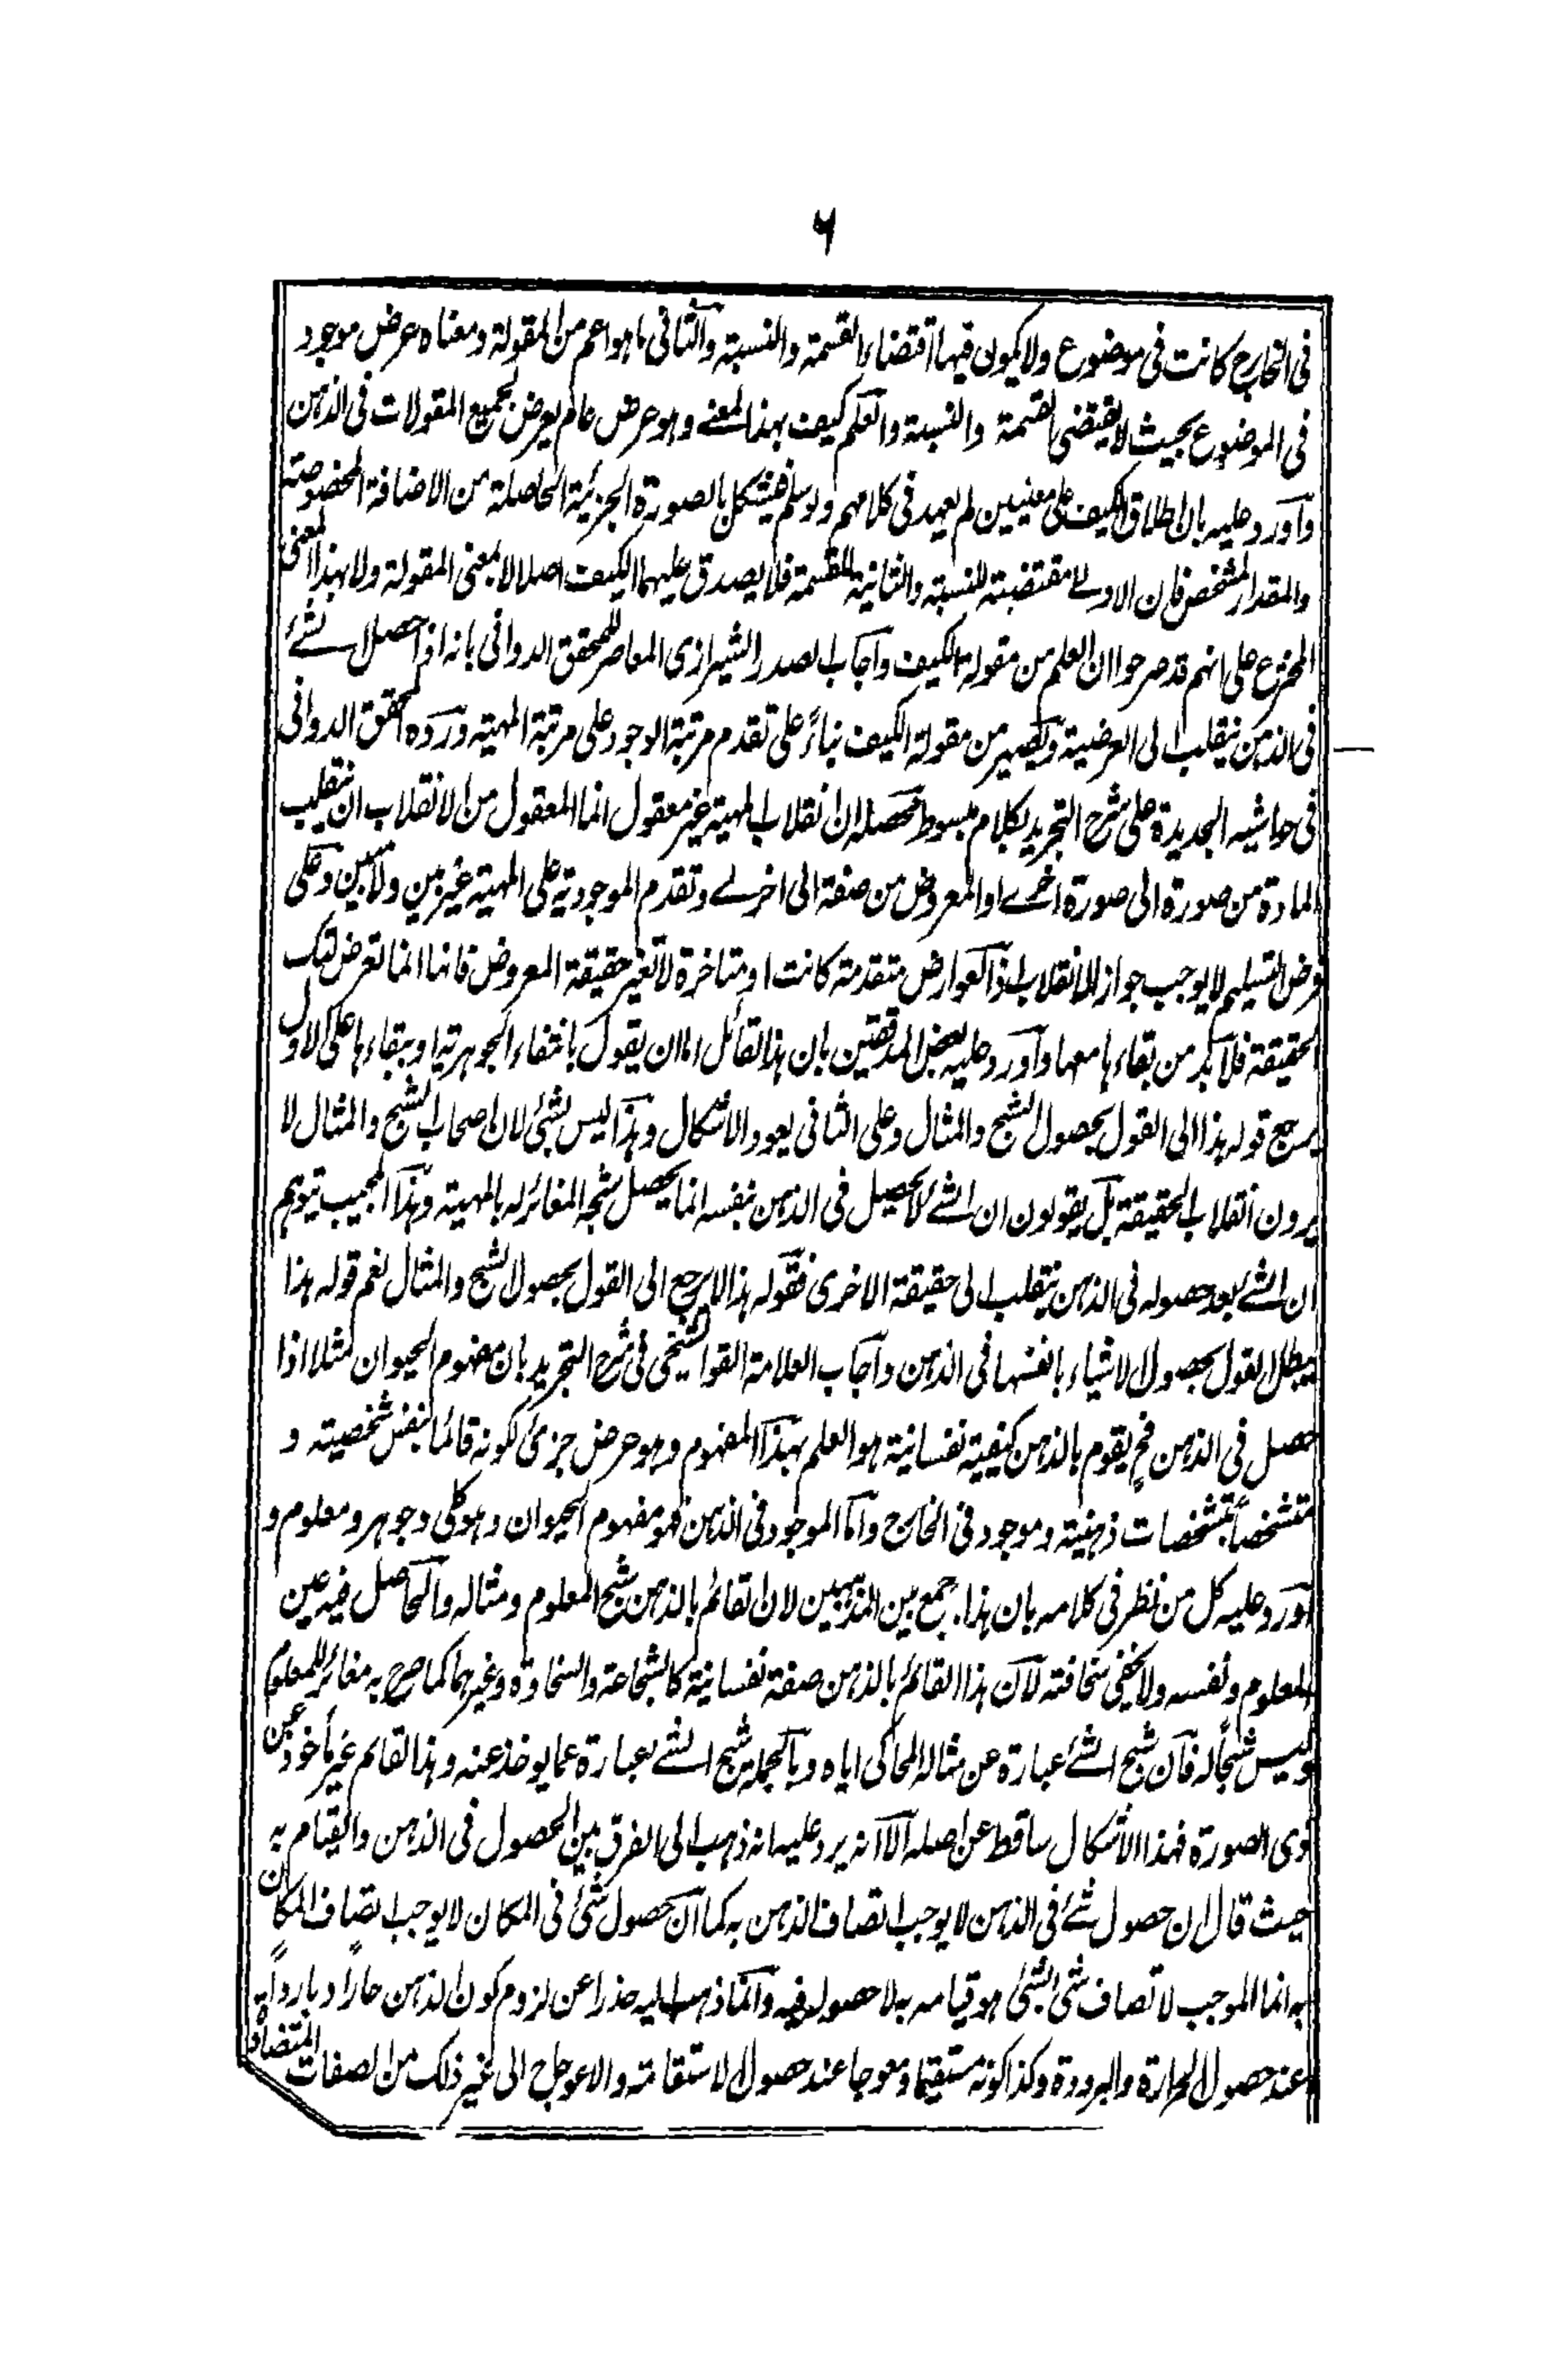 ۶
فى الخارج كانت فى موضوع ولا يكون فيها اقتضاء القسمة والنسبة والثانى ما هو اعم من المقولة ومعناه عرض موجود
فى الموضوع بحيث لا يقتضى القسمة والنسبة والعلم كيف بهذا المعنے وهو عرض عام يعرض لجميع المقولات فى الذهن
واورد عليه بان اطلاق الكيف على معنيين لم يعهد فى كلامهم ولو سلم فيشكل بالصورة الجزئية الحاصلة من الاضافة المخصوصة
والمقدار المشخص فان الاولے مقتضية للنسبة والثانية للقسمة فلا يصدق عليهما الكيف اصلا لا بمعنى المقولة ولا بهذا المعنى
المخترع على انهم قد صرحوا ان العلم من مقولة الكيف واجاب الصدر الشيرازى المعاصر للمحقق الدوانى بانه اذا حصل الشئے
فى الذهن ينقلب الى العرضية ويصير من مقولة الكيف بناءً على تقدم مرتبة الوجود على مرتبة المهية ورده المحقق الدوانى
فى حواشيه الجديدة على شرح التجريد بكلام مبسوط محصله ان انقلاب المهية غير معقول انما المعقول من الانقلاب ان ينقلب
المادة من صورة الى صورة اخرے او المعروض من صفة الى اخرے وتقدم الموجودية على المهية غير بين ولا مبين وعلى
فرض التسليم لا يوجب جواز الانقلاب اذ العوارض متقدمة كانت او متاخرة لا تغير حقيقة المعروض فانها انما تعرض لتلك
الحقيقة فلا بد من بقاءها معها واورد عليه بعض المدققين بان هذا القائل اما ان يقول بانتفاء الجوهرية او ببقاءها على الاول
يرجع قوله هذا الى القول بحصول الشبح والمثال وعلى الثانى يعود الاشكال وهذا ليس بشئ لان اصحاب الشبح والمثال لا
يرون انقلاب الحقيقة بل يقولون ان الشئے لا يحصل فى الذهن بنفسه انما يحصل شبحه المغائر له بالمهية وهذا المجيب يتوهم
ان الشئے بعد حصوله فى الذهن ينقلب الى حقيقة الاخرى فقوله هذا لا يرجع الى القول بحصول الشبح والمثال نعم قوله هذا
يبطل القول بحصول الاشياء بانفسها فى الذهن واجاب العلامة القوشنجى فى شرح التجريد بان مفهوم الحيوان مثلا اذا
حصل فى الذهن فح يقوم بالذهن كيفية نفسانية هو العلم بهذا المفهوم وهو عرض جزئ لكونه قائما بنفس شخصية و
متشخصاً بتشخصات ذهنية وموجود فى الخارج واما الموجود فى الذهن فهو مفهوم الحيوان وهو كلى وجوهر ومعلوم و
اورد عليه كل من نظر فى كلامه بان هذا جمع بين المذهبين لان القائم بالذهن شبح المعلوم ومثاله والحاصل فيه عين
المعلوم ونفسه ولا يخفى سخافته لان هذا القائم بالذهن صفة نفسانية كالشجاعة والسخاوة وغيرهما كما صرح به مغائر للمعلوم
وليس شبحاً له فان شبح الشئے عبارة عن مثاله المحاكى اياه وبالجملة شبح الشئے عبارة عما يوخذ عنه وهذا القائم غير ماخوذ عن
ذى الصورة فهذا الاشكال ساقط عن اصله الا انه يرد عليه انه ذهب الى الفرق بين الحصول فى الذهن والقيام به
حيث قال ان حصول شئے فى الذهن لا يوجب اتصاف الذهن به كما ان حصول شئ فى المكان لا يوجب اتصاف المكان
به انما الموجب لاتصاف شئ بشئ هو قيامه به لا حصوله فيه وانما ذهب اليه حذرا عن لزوم كون الذهن حاراً وبارداً
عند حصول الحرارة والبرودة وكذا كونه مستقيما ومعوجا عند حصول الاستقامة والاعوجاج الى غير ذلك من الصفات المتضادة